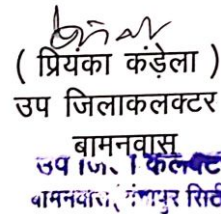 ( प्रियंका कंड़ेला )
उप जिलाकलक्टर
बामनवास
उप कलक्ट
बामनवास, गंगापुर सिटी